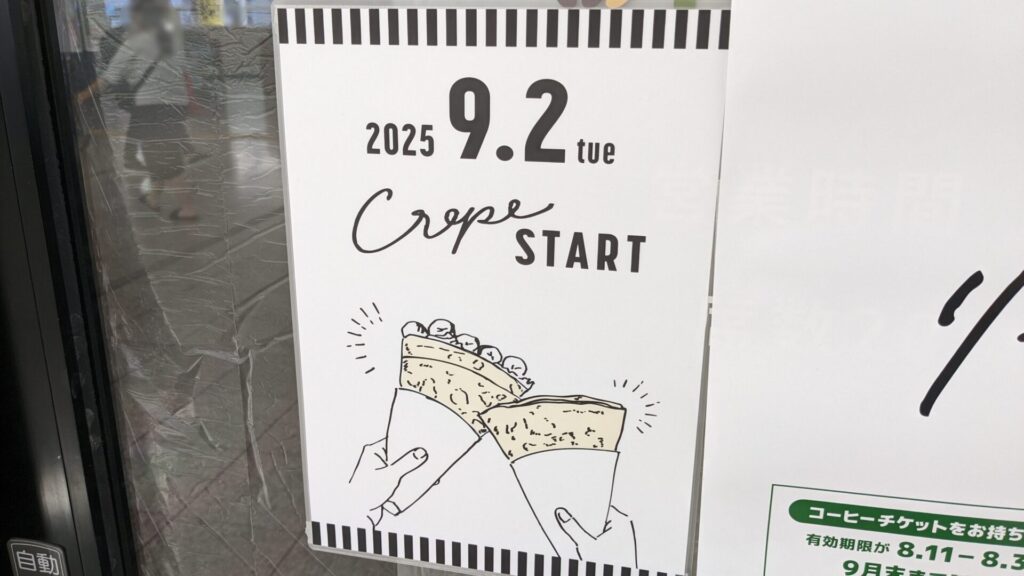 2025 9.2 tue
Crepe
START
営業時間
コーヒーチケットをお持ち
有効期限が 8.11–8.3
9月末まで
自動